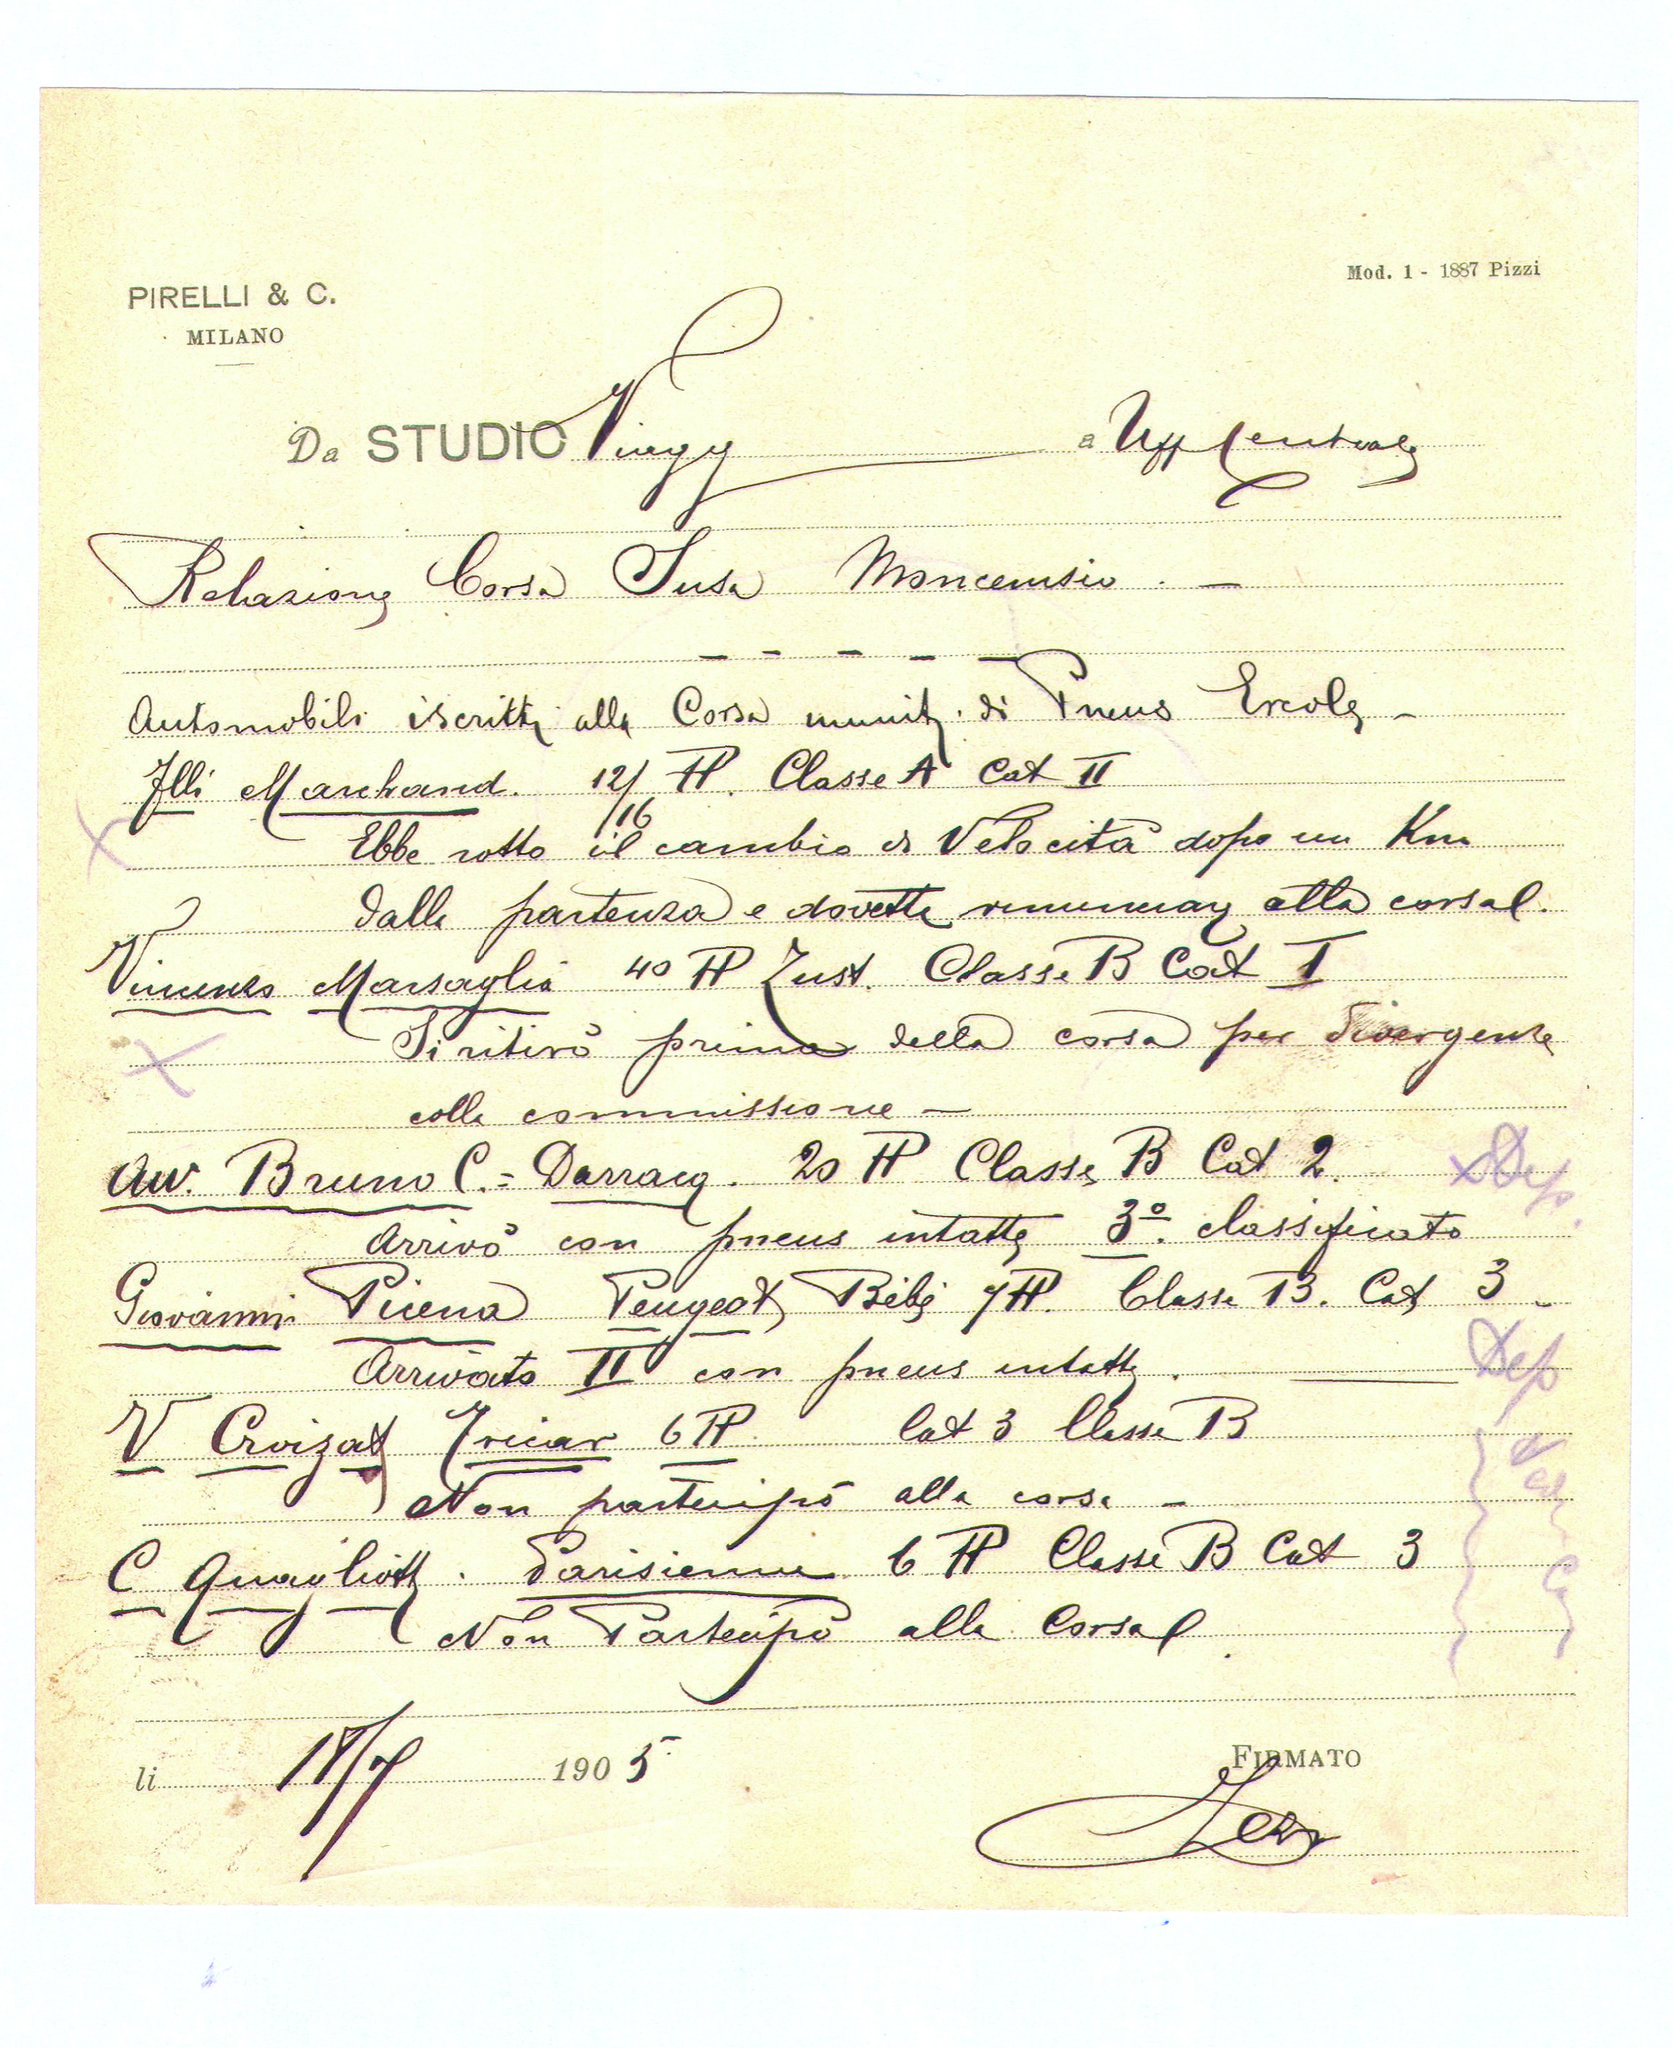 PIRELLI & C.
MILANO
Mod. 1 - 1887 Pizzi
Da STUDIO a Uff Centrale
Relazione Corsa Susa Moncenisio. -
Automobili iscritti alla Corsa muniti di Pneus Ercole -
Flli Marchand. 12/16 HP. Classe A Cat II
Ebbe rotto il cambio di Velocità dopo un Km
dalla partenza e dovette rinunciare alla corsa.
Vincenzo Marsaglia 40 HP Zust. Classe B Cat I
Si ritirò prima della corsa per divergenze
colla commissione -
Avv. Bruno C. = Darracq. 20 HP Classe B Cat 2.
Arrivò con pneus intatte 3º. classificato
Giovanni Picena Peugeot Bébé 7 HP. Classe B. Cat 3 -
Arrivato II con pneus intatte.
V Croizat Tricar 6 HP Cat 3 Classe B
Non partecipò alla corsa -
C Quagliotti. Parisienne 6 HP Classe B Cat 3
Non Partecipò alla Corsa.
li 18/7 1905
FIRMATO